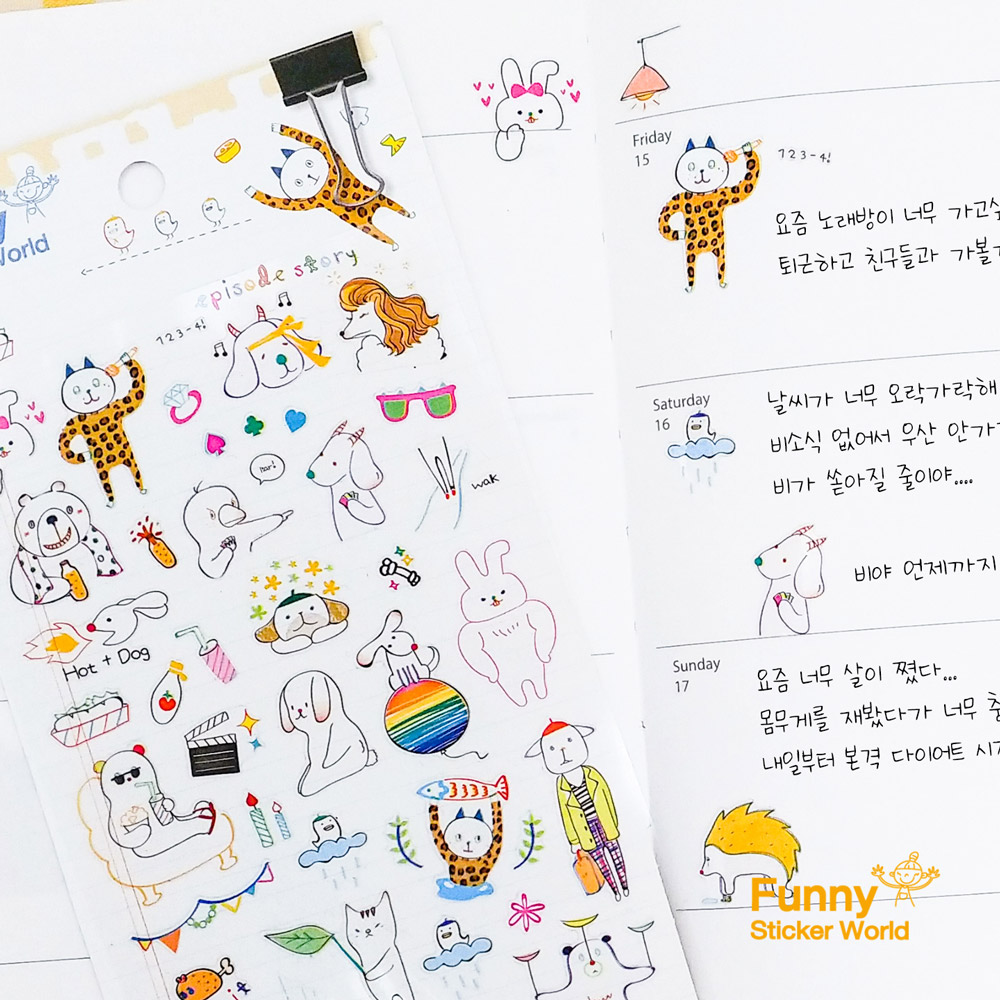 World
episode story
1 2 3 - 4!
Hot + Dog
wak
Friday
15
1 2 3 - 4!
요즘 노래방이 너무 가고
퇴근하고 친구들과 가볼
Saturday
16
날씨가 너무 오락가락해
비소식 없어서 우산 안가
비가 쏟아질 줄이야....
비야 언제까지
Sunday
17
요즘 너무 살이 쪘다...
몸무게를 재봤다가 너무
내일부터 본격 다이어트
Funny
Sticker World